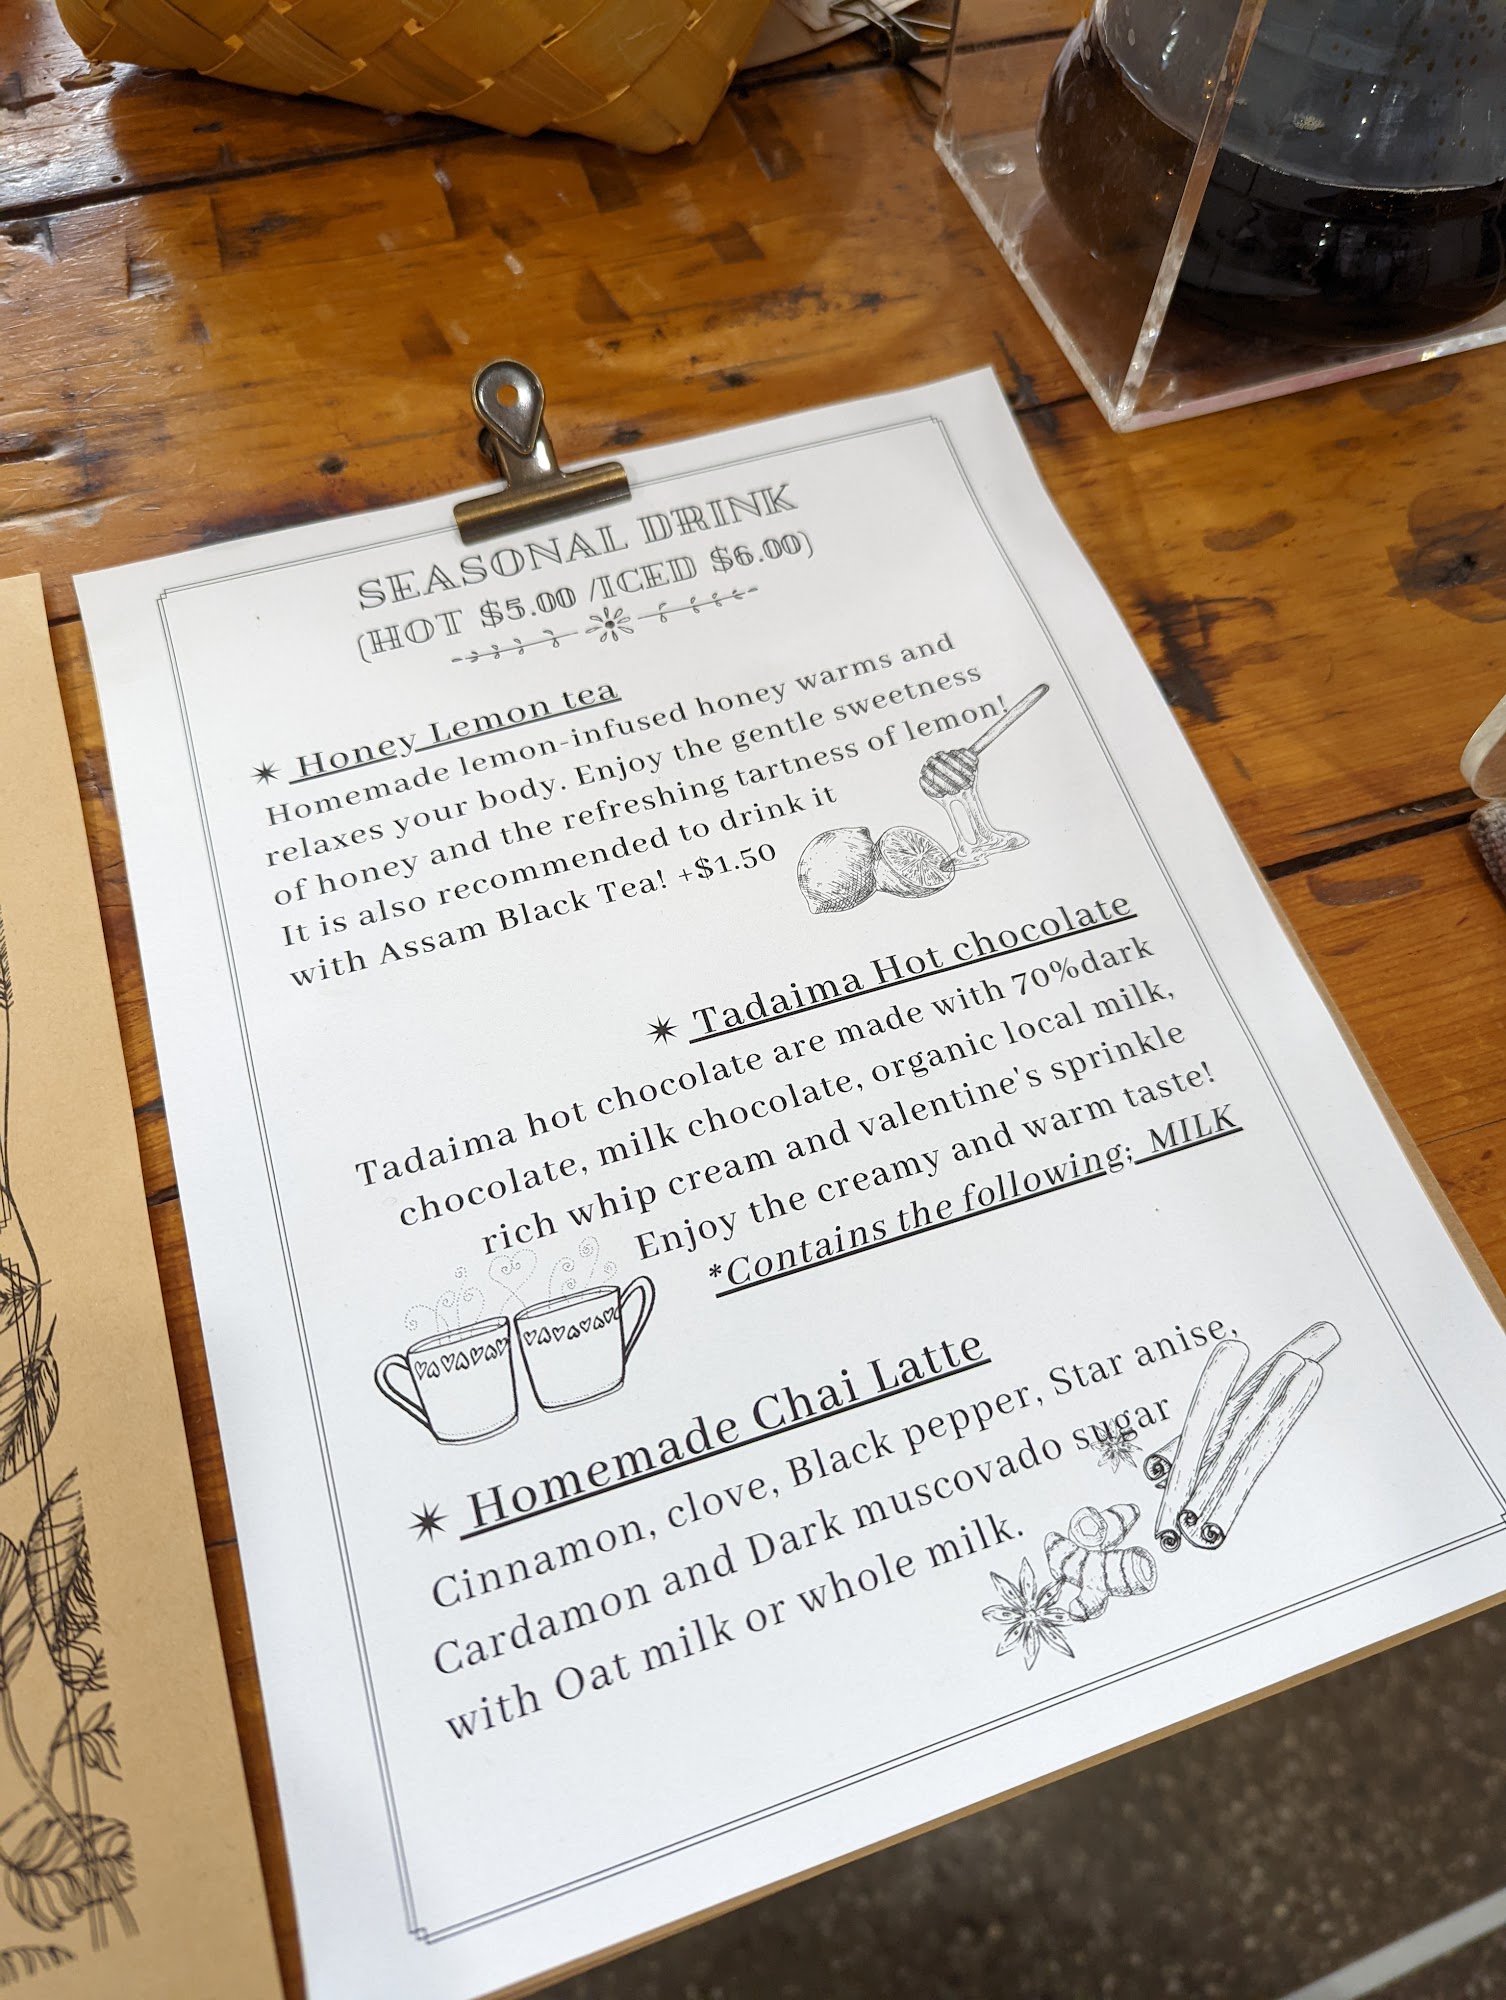 SEASONAL DRINK
(HOT $5.00 /ICED $6.00)
Honey Lemon tea
Homemade lemon-infused honey warms and
relaxes your body. Enjoy the gentle sweetness
of honey and the refreshing tartness of lemon!
It is also recommended to drink it
with Assam Black Tea! +$1.50
Tadaima Hot chocolate
Tadaima hot chocolate are made with 70%dark
chocolate, milk chocolate, organic local milk,
rich whip cream and valentine's sprinkle
Enjoy the creamy and warm taste!
*Contains the following; MILK
Homemade Chai Latte
Cinnamon, clove, Black pepper, Star anise,
Cardamon and Dark muscovado sugar
with Oat milk or whole milk.